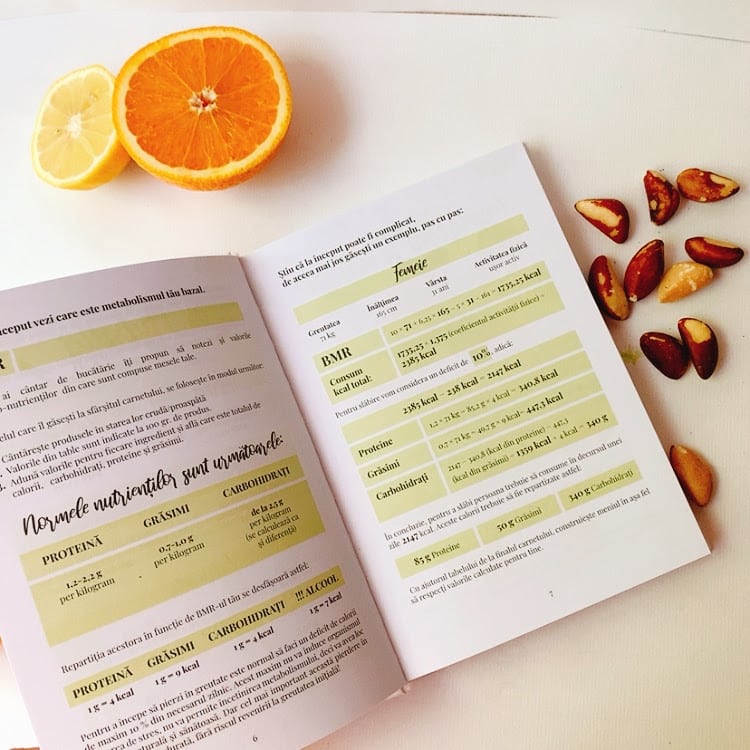 nceput vezi care este metabolismul tău bazal.
R
ai cântar de bucătărie îți propun să notezi și valorile
-nutrienților din care sunt compuse mesele tale.
elul care îl găsești la sfârșitul carnetului, se folosește în modul următor:
Cântărește produsele in starea lor crudă/proaspătă
Valorile din table sunt indicate la 100 gr. de produs.
Adună valorile pentru fiecare ingredient și află care este totalul de
calorii, carbohidrați, proteine și grăsimi.
Normele nutrienților sunt următoarele:
PROTEINĂ GRĂSIMI CARBOHIDRAȚI
1,2-2,2 g
per kilogram
0,7-1,0 g
per kilogram
de la 2,5 g
per kilogram
(se calculează ca
și diferență)
Repartiția acestora în funcție de BMR-ul tău se desfășoară astfel:
PROTEINĂ GRĂSIMI CARBOHIDRAȚI !!! ALCOOL
1 g = 4 kcal 1 g = 9 kcal 1 g = 4 kcal 1 g = 7 kcal
Pentru a începe să pierzi în greutate este normal să faci un deficit de calorii
de maxim 10 % din necesarul zilnic. Acest maxim nu va induce organismul
de stres, nu va permite încetinirea metabolismului, deci va avea loc
naturală și sănătoasă. Dar cel mai important această pierdere în
durată, fără riscul revenirii la greutatea inițială!
6
Știu că la început poate fi complicat,
de aceea mai jos găsești un exemplu, pas cu pas:
Femeie
Greutatea Înălțimea Vârsta Activitatea fizică
71 kg 165 cm 31 ani ușor activ
BMR 10 × 71 + 6,25 × 165 – 5 × 31 – 161 = 1735,25 kcal
Consum
kcal total:
1735,25 × 1,375 (coeficientul activității fizice) =
2385 kcal
Pentru slăbire vom considera un deficit de 10%, adică:
2385 kcal – 238 kcal = 2147 kcal
Proteine 1,2 × 71 kg = 85,2 g × 4 kcal = 340,8 kcal
Grăsimi 0,7 × 71 kg = 49,7 g × 9 kcal = 447,3 kcal
Carbohidrați 2147 – 340,8 (kcal din proteine) – 447,3
(kcal din grăsimi) = 1359 kcal ÷ 4 kcal = 340 g
In concluzie, pentru a slăbi persoana trebuie să consume în decursul unei
zile 2147 kcal. Aceste calorii trebuie să fie repartizate astfel:
85 g Proteine 50 g Grăsimi 340 g Carbohidrați
Cu ajutorul tabelului de la finalul carnetului, construiește meniul în așa fel
să respecți valorile calculate pentru tine.
7